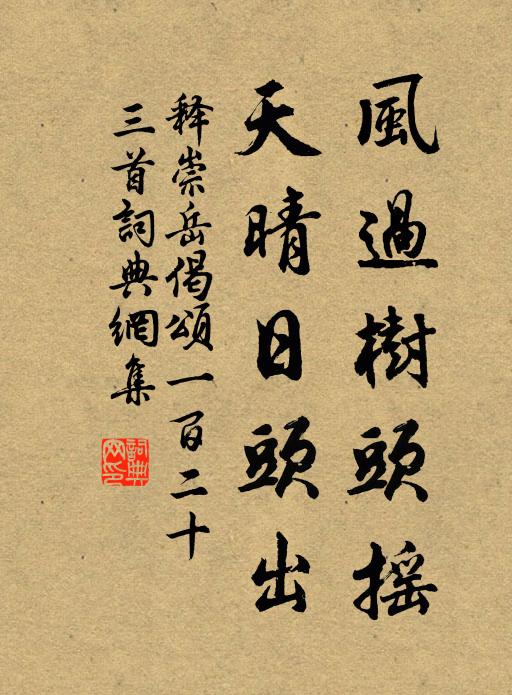 風過樹頭摇
天晴日頭出
释崇岳偈頌一百二十
三首詞典網集
詞典
网印